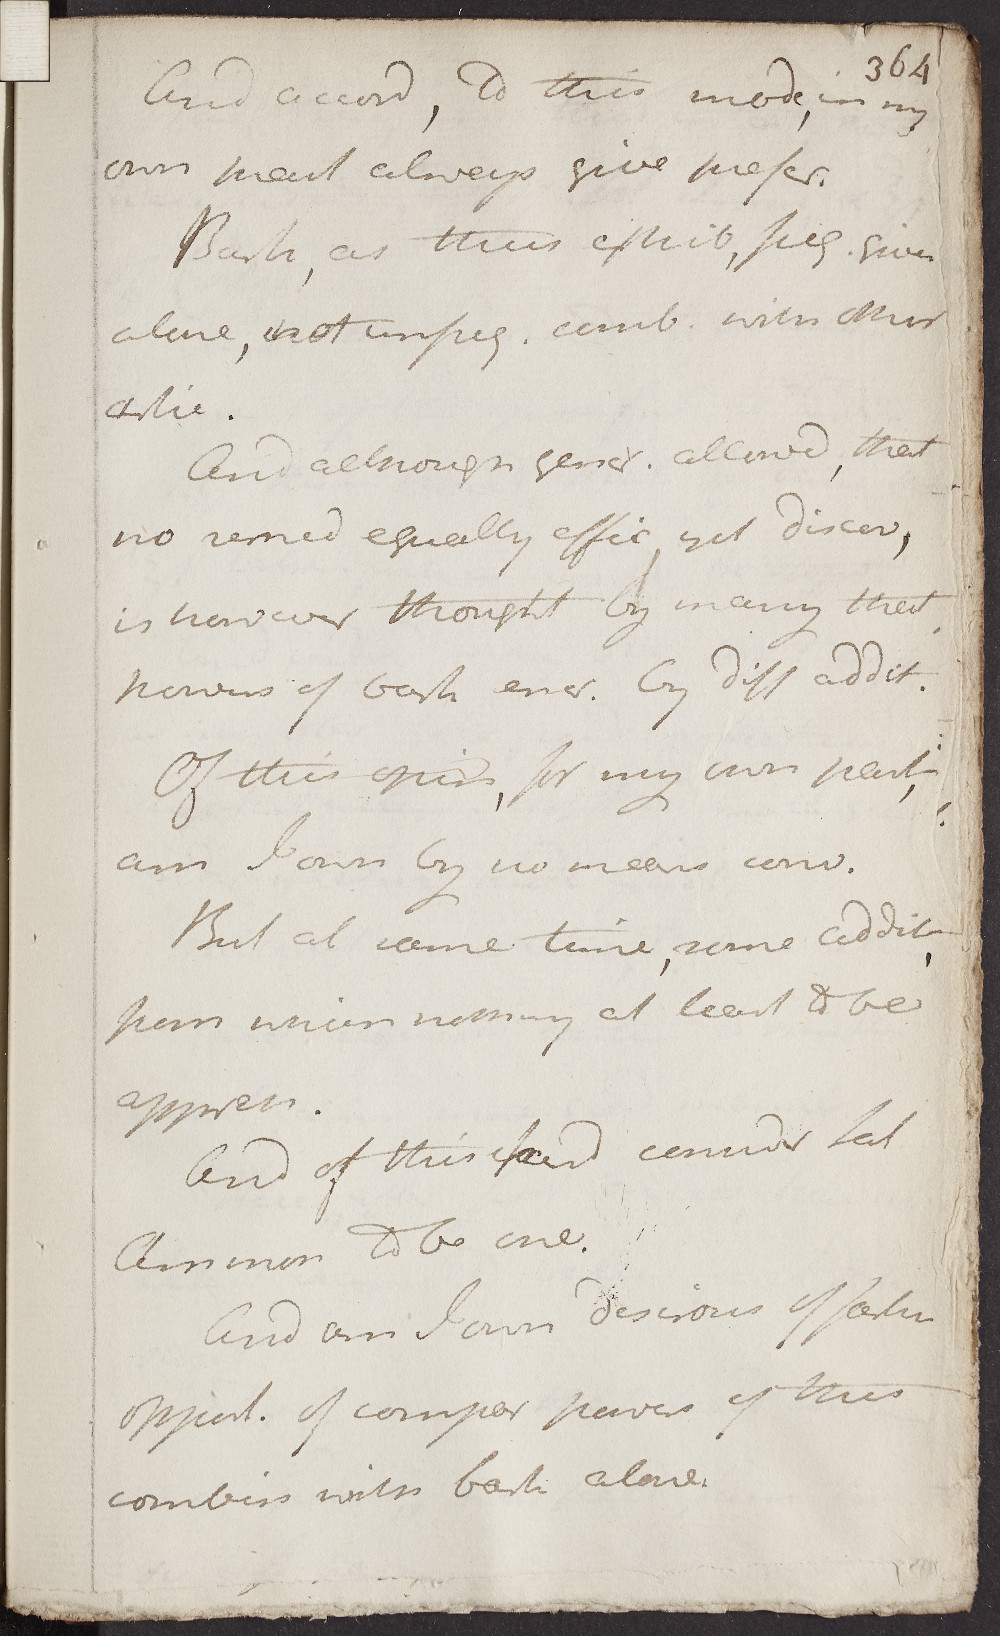 364
And accord, to this mode, in my
own pract always give prefer.
Bark, as thus exhib, freq. given
alone, not unfreq. comb. with other
artic.
And although gener. allowed, that
no remed equally effic, yet discov,
is however thought by many that
powers of bark encr. by diff addit.
Of this opin, for my own part,
am I own by no means conv.
But at same time, some addit,
from which nothing at least to be
appreh.
And of this kind consider Sal
Ammon to be one.
And am I own desirous of farther
opport. of compar powers of this
combin with bark alone.